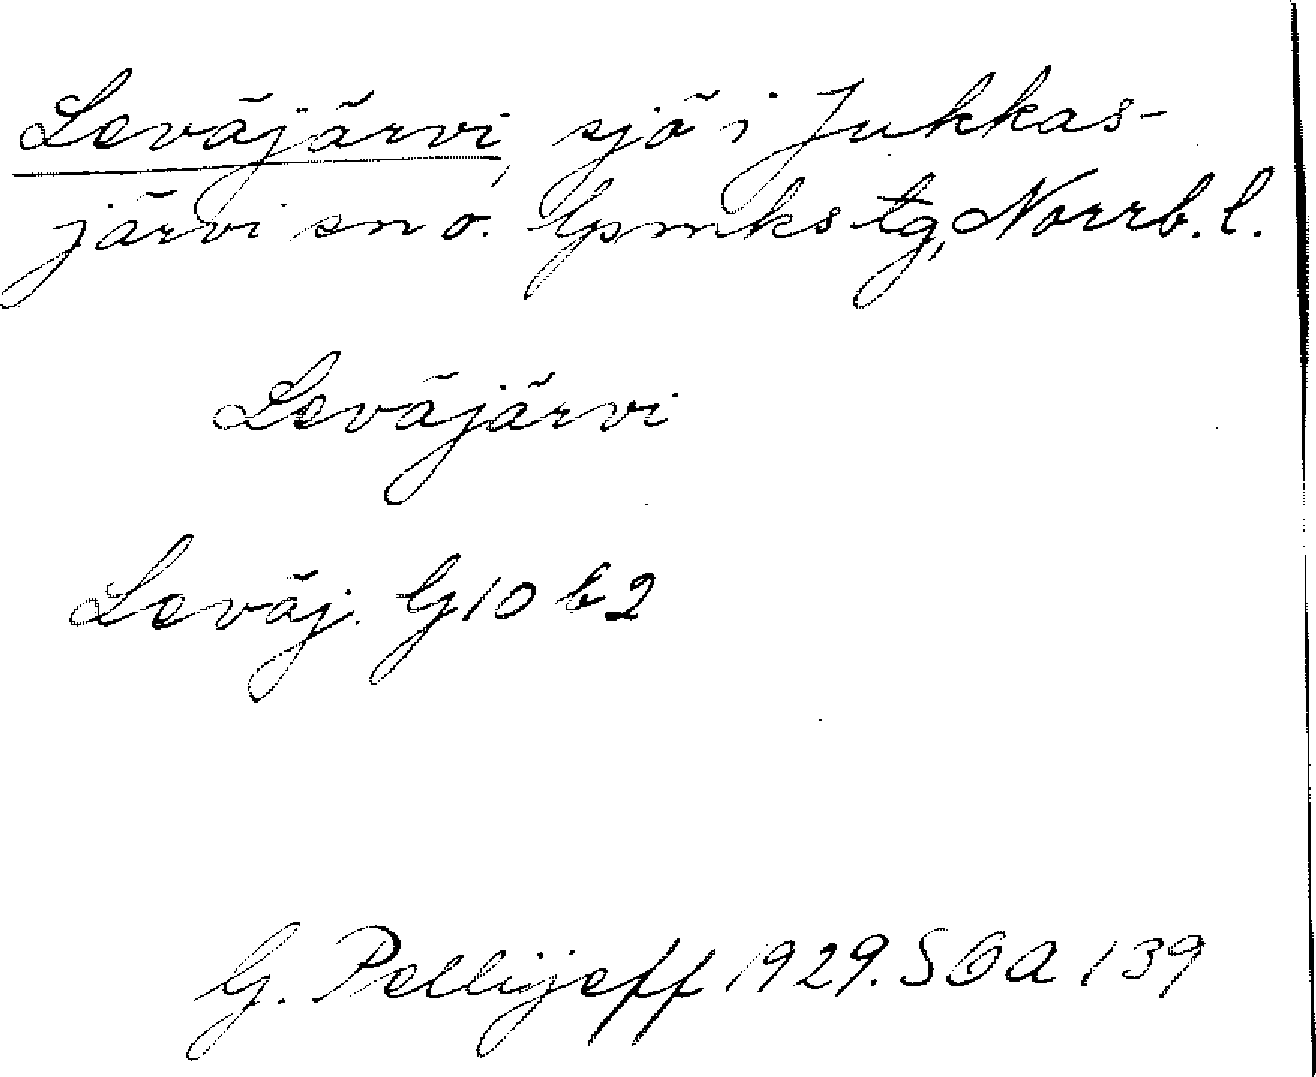 Leväjärvi, sjö i Jukkas-
järvi sn o. Gsmks tg, Norrb. l.
Leväjärvi
Leväj. G 10 b 2
G. Pellijeff 1929. SOA 139